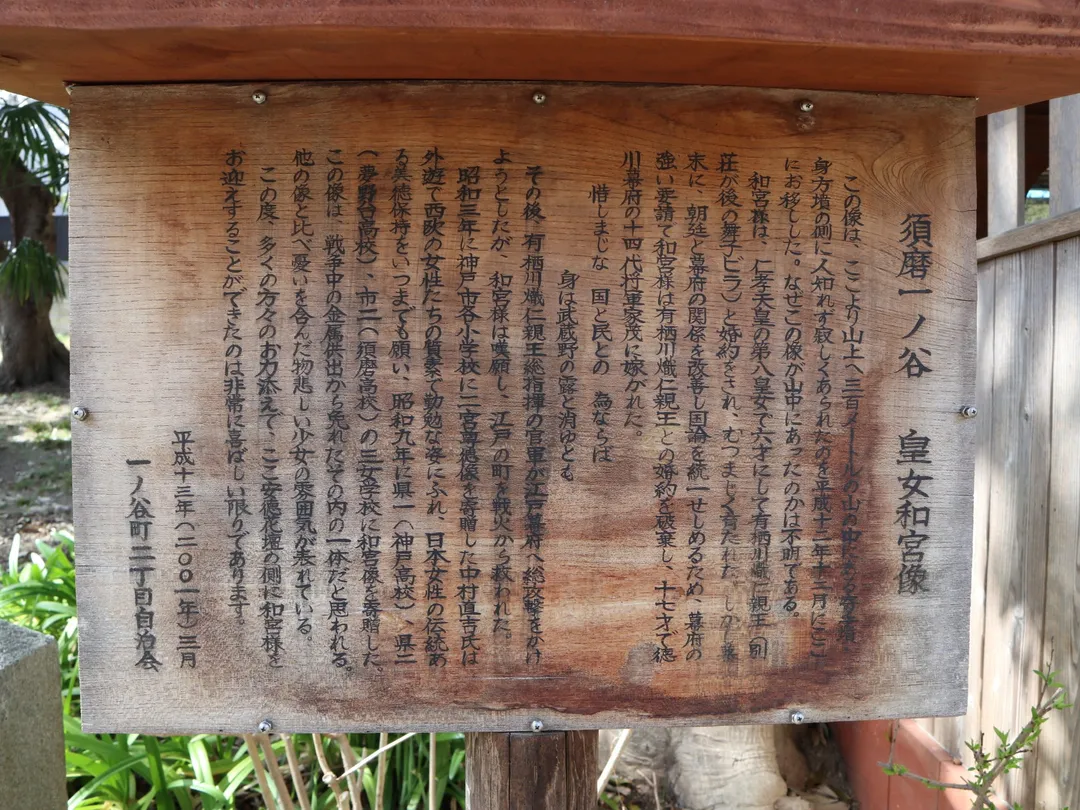 須磨一ノ谷 皇女和宮像
この像は、ここより山上へ三百メートルの山の中にある
身方塚の側に人知れず寂しくあられたのを平成十二年十二月にここ
にお移しした。なぜこの像が山中にあったのかは不明である。
和宮様は、仁孝天皇の第八皇女で六才にして有栖川熾仁親王(別
荘が後の舞子ビラ)と婚約をされ、むつまじく育たれた。しかし幕
末に、朝廷と幕府の関係を改善し国論を統一せしめるため、幕府の
強い要請で和宮様は有栖川熾仁親王との婚約を破棄し、十七才で徳
川幕府の十四代将軍家茂に嫁がれた。
惜しまじな 国と民との 為ならば
身は武蔵野の露と消ゆとも
その後、有栖川熾仁親王総指揮の官軍が江戸幕府へ総攻撃をかけ
ようとしたが、和宮様は嘆願し、江戸の町を戦火から救われた。
昭和三年に神戸市各小学校に二宮尊徳像を寄贈した中村直吉氏は
外遊で西欧の女性たちの質素で勤勉な姿にふれ、日本女性の伝統あ
る美徳保持をいつまでも願い、昭和九年に県一(神戸高校)、県二
(夢野台高校)、市二(須磨高校)の三女学校に和宮像を寄贈した。
この像は、戦争中の金属供出から免れたその内の一体だと思われる。
他の像と比べ憂いを含んだ物悲しい少女の雰囲気が表れている。
この度、多くの方々のお力添えで、ここ安徳花壇の側に和宮様を
お迎えすることができたのは非常に喜ばしい限りであります
平成十三年(二〇〇一年)三月
一ノ谷町二丁目自治会